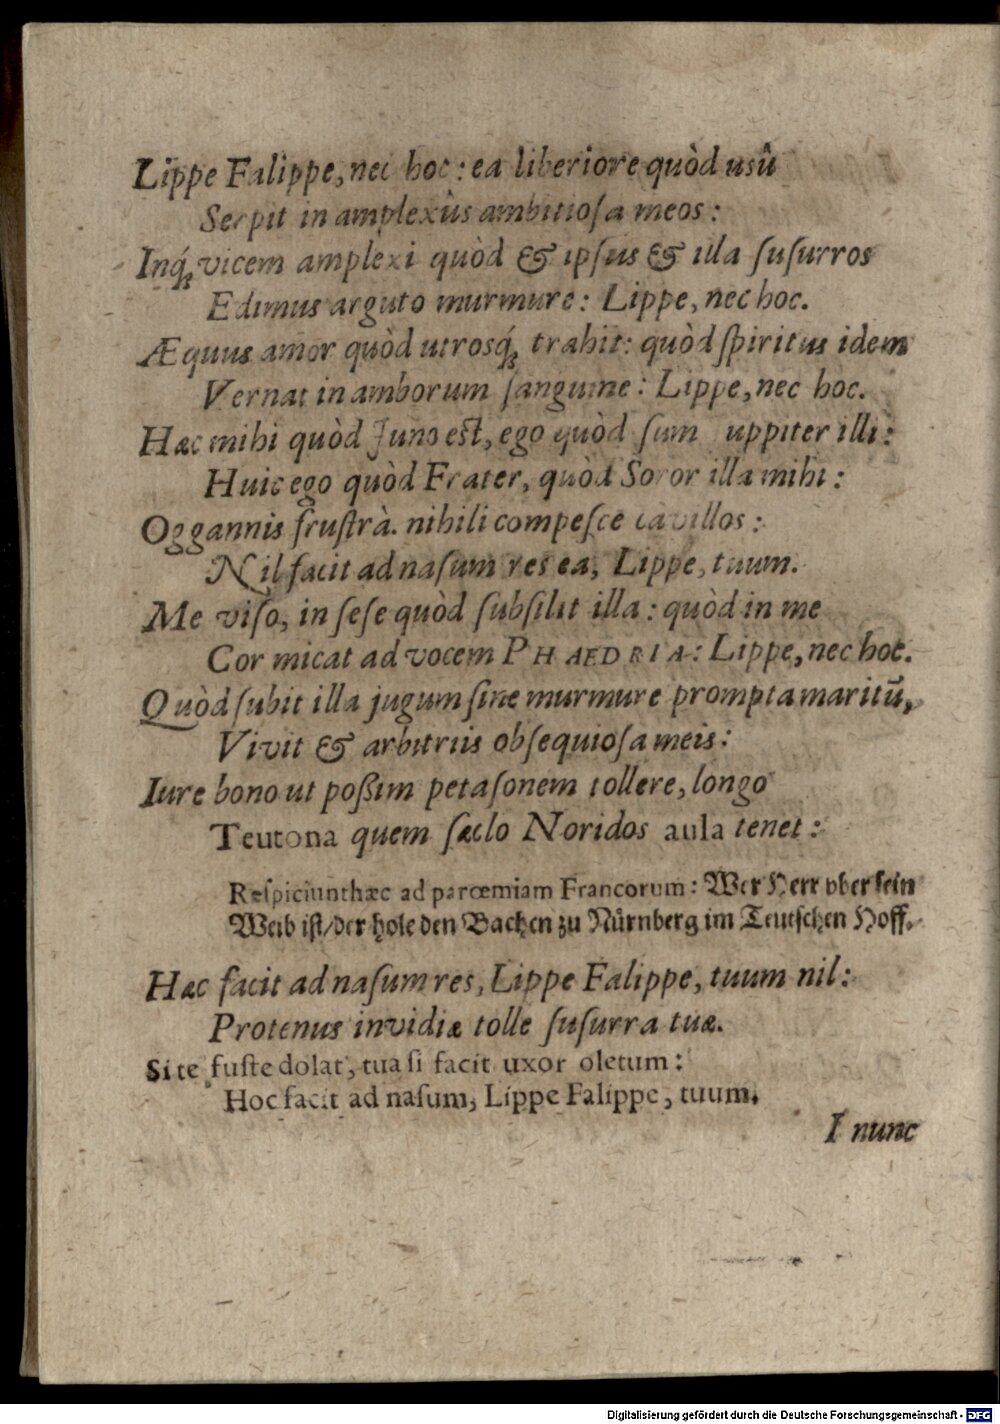 Lippe Falippe, nec hoc: ea liberiore quòd usû
Serpit in amplexùs ambitioſa meos:
Inq́; vicem amplexi quòd & ipſus & illa ſuſurros
Edimus arguto murmure: Lippe, nec hoc.
Æquus amor quòd utrosq́; trahit: quòd ſpiritus idem
Vernat in amborum ſanguine: Lippe, nec hoc.
Hæc mihi quòd Juno eſt, ego quòd ſum uppiter illi:
Huic ego quòd Frater, quòd Soror illa mihi:
Oggannis fruſtrà. nihili compeſce cavillos:
Nil facit ad naſum res ea, Lippe, tuum.
Me viſo, in ſeſe quòd ſubſilit illa: quòd in me
Cor micat ad vocem PHAEDRIA: Lippe, nec hoc.
Quòd ſubit illa jugum ſine murmure prompta maritū,
Vivit & arbitriis obſequioſa meis:
Iure bono ut poßim petaſonem tollere, longo
Teutona quem ſæclo Noridos aula tenet:
Reſpiciunt hæc ad parœmiam Francorum: Wer Herr vber ſein
Weib iſt/ der hole den Bachen zu Nürnberg im Teutſchen Hoff.
Hæc facit ad naſum res, Lippe Falippe, tuum nil:
Protenus invidiæ tolle ſuſurra tuæ.
Si te fuſte dolat, tua ſi facit uxor oletum:
Hoc facit ad naſum, Lippe Falippe, tuum.
I nunc
Digitalisierung gefördert durch die Deutsche Forschungsgemeinschaft - DFG